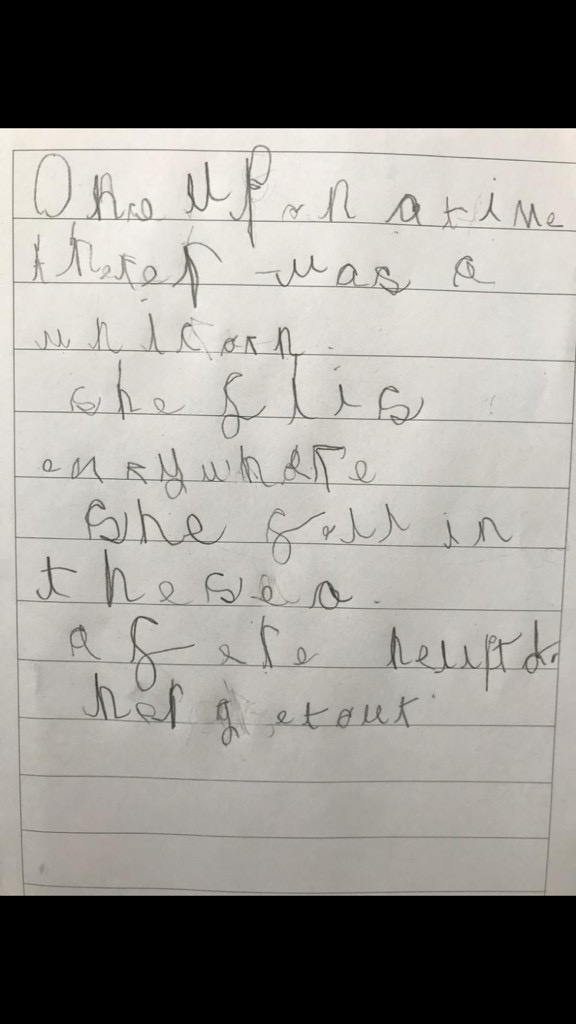 Onc upon a time
therer was a
unicorn.
she flis
enrywhere
She fall in
the sea.
a fere heupt
her get out